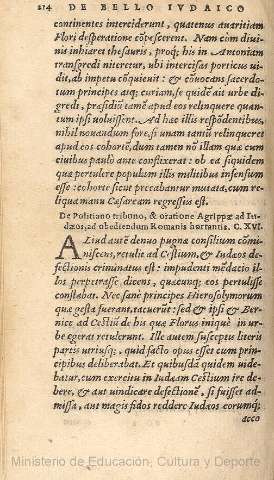 214 DE BELLO IVDAICO
continentes interciderunt, quatenus auaritiam
Flori desperatione cōpescerent. Nam cùm diui-
nis inhiaret thesauris, proq; his in Antoniam
transgredi niteretur, ubi intercisas porticus ui-
dit, ab impetu cōquieuit: & cōuocans sacerdo-
tum principes atq; curiam, se quidē ait urbe di-
gredi, præsidiū tamē apud eos relinquere quan-
tum ipsi uoluissent. Ad hæc illis respōdentibus,
nihil nouandum fore, si unam tantū relinqueret
apud eos cohortē, dum tamen nō illam quæ cum
ciuibus paulò ante conflixerat: ob ea siquidem
quæ pertulere populum illis militibus infensum
esse: cohorte sicut precabantur mutata, cum reli-
qua manu Cæsaream regressus est.
De Politiano tribuno, & oratione Agrippæ ad Iu-
dæos, ad obediendum Romanis hortantis. C. XVI.
ALiud autē denuo pugnæ consilium commi-
niscens, retulit ad Cestium, & Iudæos de-
fectionis criminatus est: impudenti mēdatio il-
los perpetrasse dicens, quæcunq; eos pertulisse
constabat. Nec sanè principes Hierosolymorum
quæ gesta fuerant, tacuerūt: sed & ipsi & Ber-
nice ad Cestiū de his quæ Florus iniquè in ur-
be egerat retulerunt. Ille autem susceptis literis
partis utriusq;, quid facto opus esset cum prin-
cipibus deliberabat. Et quibusdā quidem uide-
batur, cum exercitu in Iudæam Cestium ire de-
bere, & aut uindicare defectionē, si fuisset ad-
missa, aut magis fidos reddere Iudæos eorumq;
acco
Ministerio de Educación, Cultura y Deporte